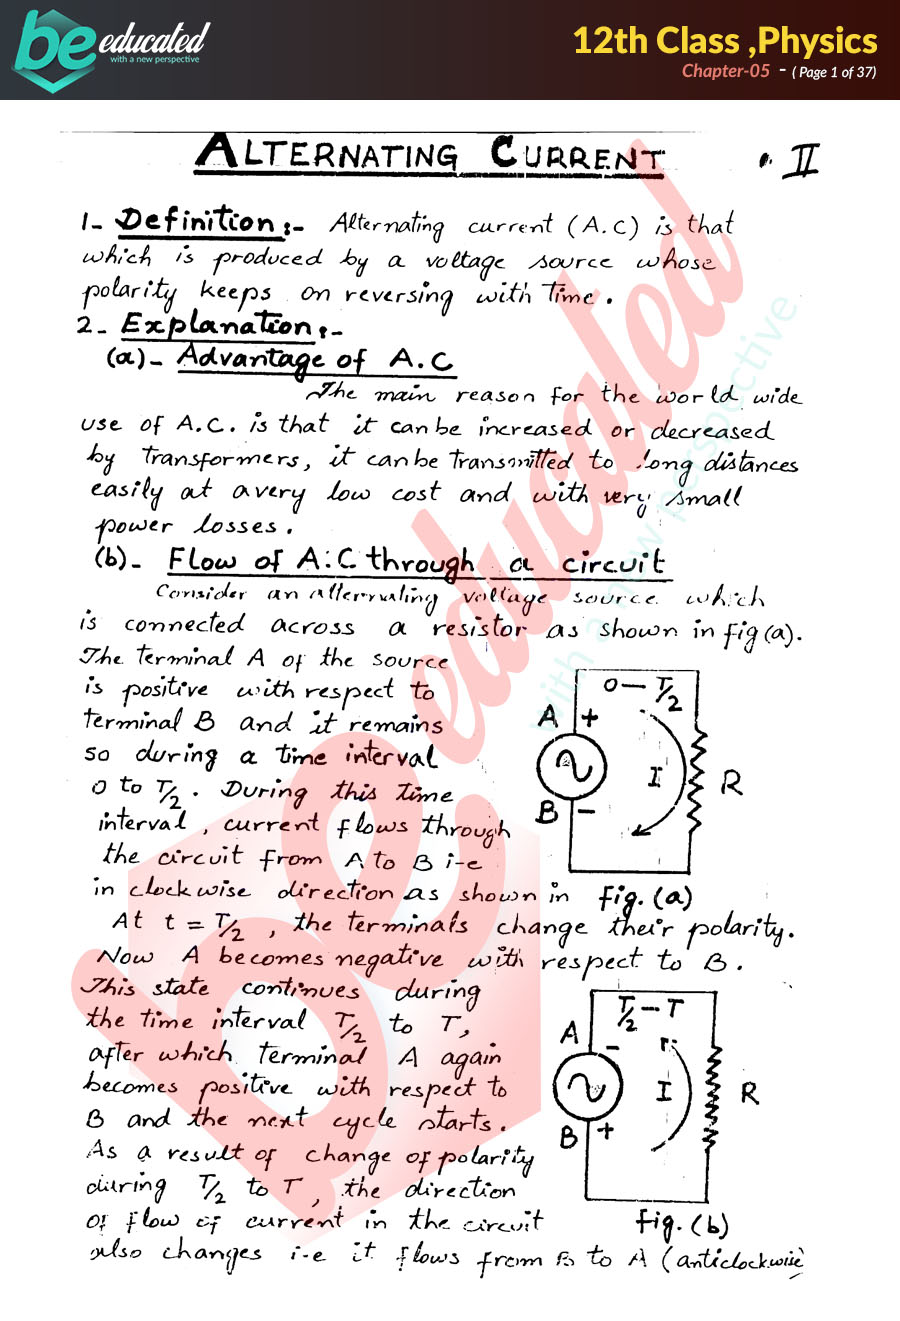 be educated
with a new perspective
12th Class ,Physics
Chapter-05 - ( Page 1 of 37)
ALTERNATING CURRENT II
1- Definition:- Alternating current (A.C) is that
which is produced by a voltage source whose
polarity keeps on reversing with time.
2- Explanation:-
(a)- Advantage of A.C
The main reason for the world wide
use of A.C. is that it can be increased or decreased
by transformers, it can be transmitted to long distances
easily at a very low cost and with very small
power losses.
(b)- Flow of A.C through a circuit
Consider an alternating voltage source which
is connected across a resistor as shown in fig(a).
The terminal A of the source
is positive with respect to
terminal B and it remains
so during a time interval
0 to T/2. During this time
interval, current flows through
the circuit from A to B i-e
in clockwise direction as shown in fig.(a)
0 — T/2
A +
I
R
B -
At t = T/2, the terminals change their polarity.
Now A becomes negative with respect to B.
This state continues during
the time interval T/2 to T,
after which terminal A again
becomes positive with respect to
B and the next cycle starts.
As a result of change of polarity
during T/2 to T, the direction
of flow of current in the circuit
also changes i-e it flows from B to A (anticlockwise
T/2 — T
A -
I
R
B +
fig.(b)
be educated
with a new perspective